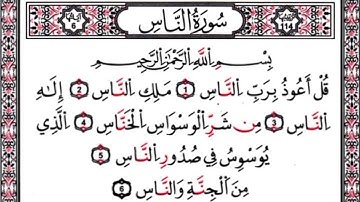 سُورَةُ النَّاسِ
آياتها 6
114
بِسْمِ اللَّهِ الرَّحْمَٰنِ الرَّحِيمِ
قُلْ أَعُوذُ بِرَبِّ النَّاسِ 1 مَلِكِ النَّاسِ 2 إِلَٰهِ
النَّاسِ 3 مِن شَرِّ الْوَسْوَاسِ الْخَنَّاسِ 4 الَّذِي
يُوَسْوِسُ فِي صُدُورِ النَّاسِ 5
مِنَ الْجِنَّةِ وَالنَّاسِ 6